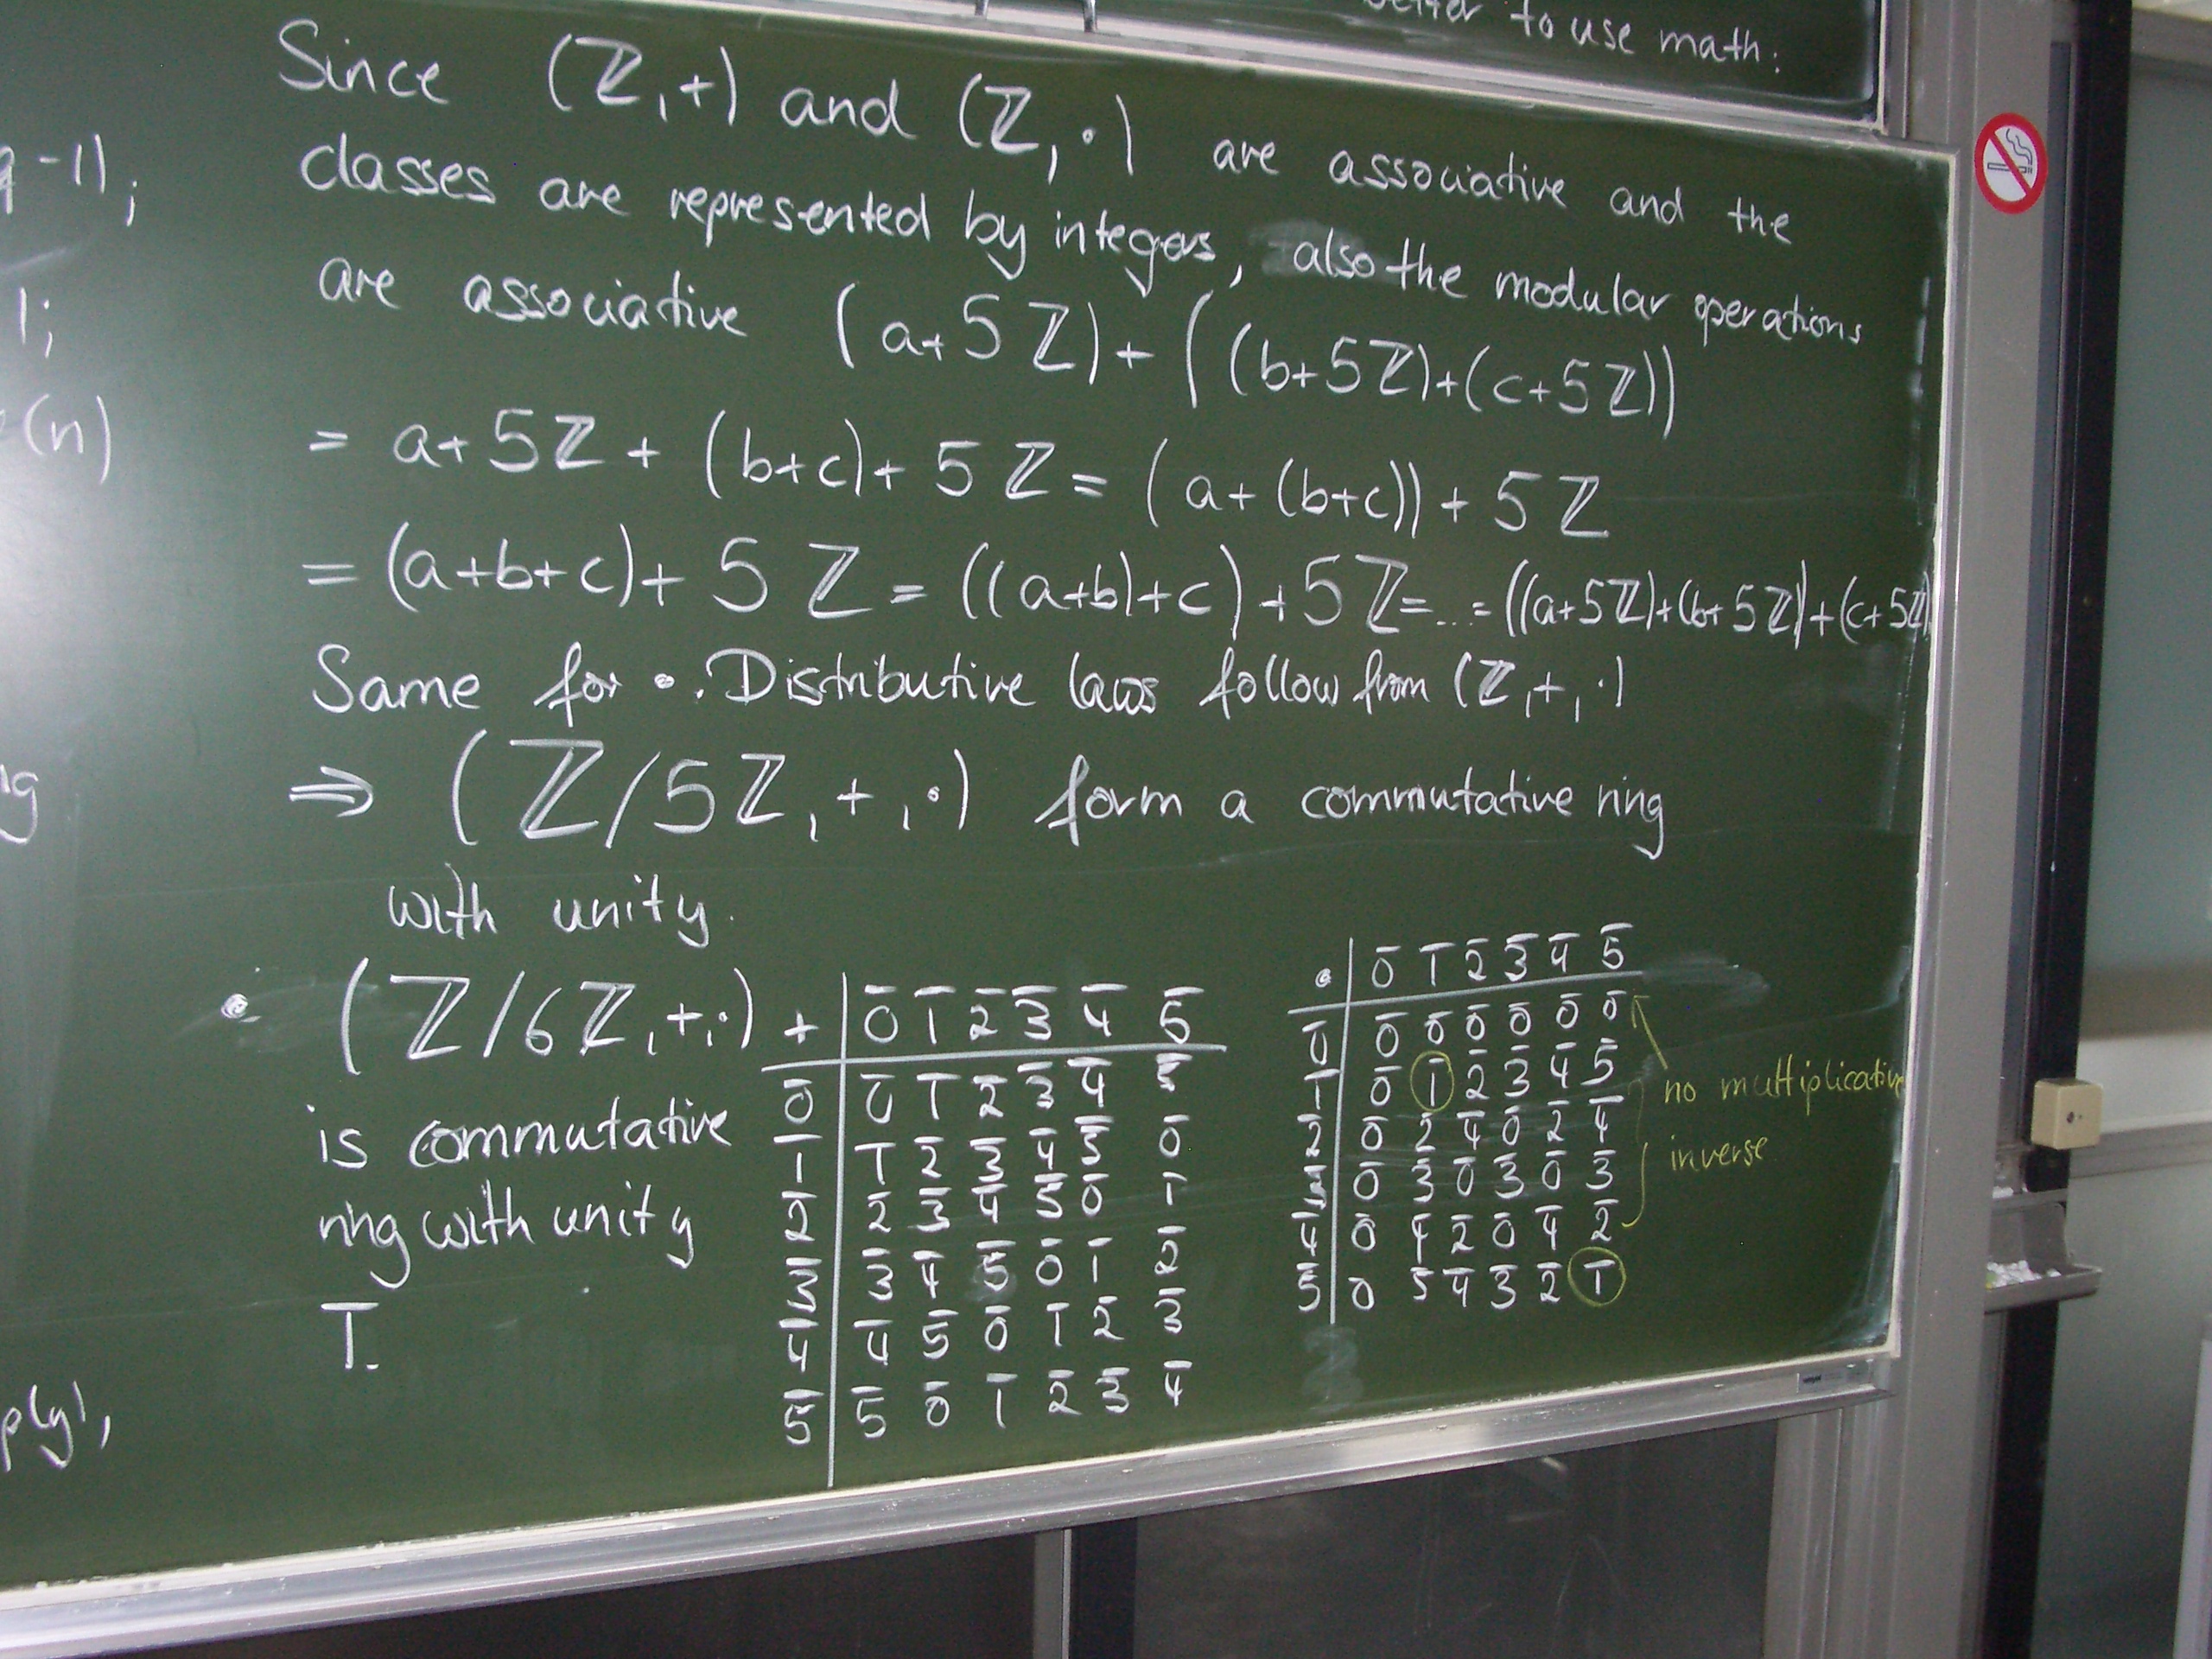 better to use math:
q-1);
1;
(n)
ng
p(y),
Since (ℤ,+) and (ℤ,·) are associative and the
classes are represented by integers, also the modular operations
are associative (a+5ℤ)+((b+5ℤ)+(c+5ℤ))
= a+5ℤ+(b+c)+5ℤ=(a+(b+c))+5ℤ
=(a+b+c)+5ℤ=((a+b)+c)+5ℤ=...=((a+5ℤ)+(b+5ℤ))+(c+5ℤ)
Same for •. Distributive laws follow from (ℤ,+,·)
⇒ (ℤ/5ℤ,+,·) form a commutative ring
with unity.
• (ℤ/6ℤ,+,·)
is commutative
ring with unity
1̅.
+ | 0̅ 1̅ 2̅ 3̅ 4̅ 5̅
0̅ | 0̅ 1̅ 2̅ 3̅ 4̅ 5̅
1̅ | 1̅ 2̅ 3̅ 4̅ 5̅ 0̅
2̅ | 2̅ 3̅ 4̅ 5̅ 0̅ 1̅
3̅ | 3̅ 4̅ 5̅ 0̅ 1̅ 2̅
4̅ | 4̅ 5̅ 0̅ 1̅ 2̅ 3̅
5̅ | 5̅ 0̅ 1̅ 2̅ 3̅ 4̅
• | 0̅ 1̅ 2̅ 3̅ 4̅ 5̅
0̅ | 0̅ 0̅ 0̅ 0̅ 0̅ 0̅
1̅ | 0̅ 1̅ 2̅ 3̅ 4̅ 5̅
2̅ | 0̅ 2̅ 4̅ 0̅ 2̅ 4̅
3̅ | 0̅ 3̅ 0̅ 3̅ 0̅ 3̅
4̅ | 0̅ 4̅ 2̅ 0̅ 4̅ 2̅
5̅ | 0̅ 5̅ 4̅ 3̅ 2̅ 1̅
no multiplicative
inverse